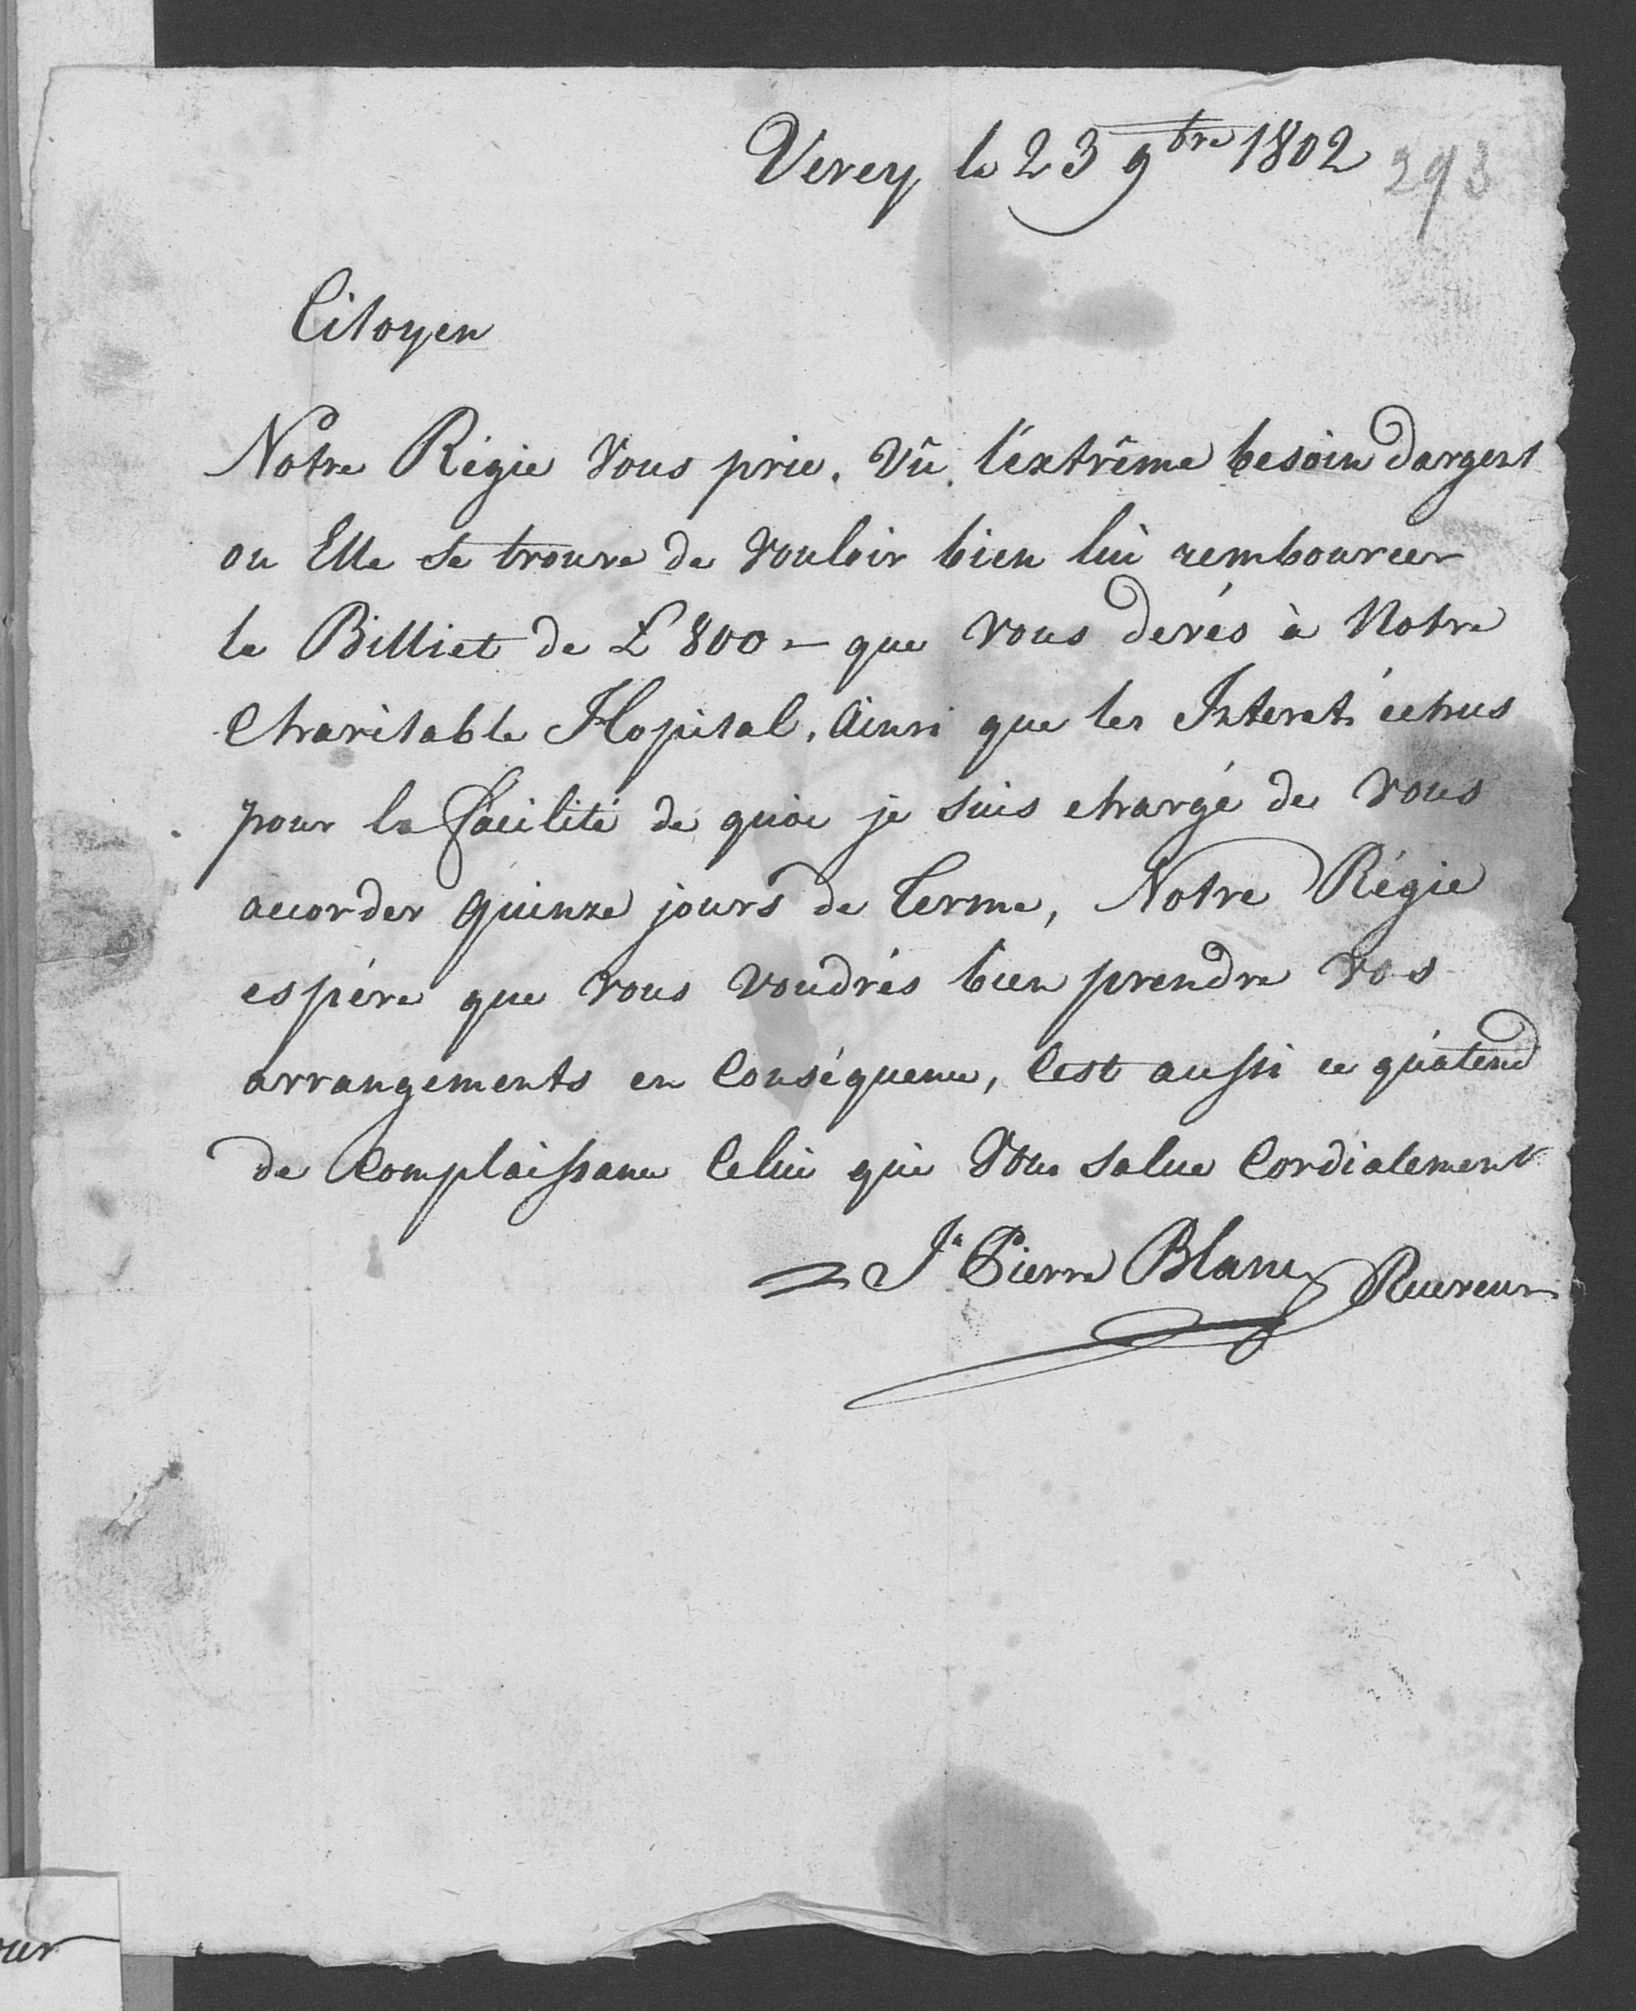 Vevey le 23 9bre 1802
293
Citoyen
Notre Régie Vous prie, Vû, l'éxtrême besoin dargent
ou Elle se trouve de Vouloir bien lui rembourcer
le Billiet de L 800 - que vous devés à Notre
Charitable Hopital, Ainsi que les Interet échus
pour la facilité de quoi je suis chargé de vous
accorder quinze jours de Terme, Notre Régie
espére que vous voudrés bien prendre vos
arrangements en Conséquence, Cest aussi ce qu'atend
de Complaissance Celui qui Vous salue Cordialement
Jn Pierre Blanc Receveur